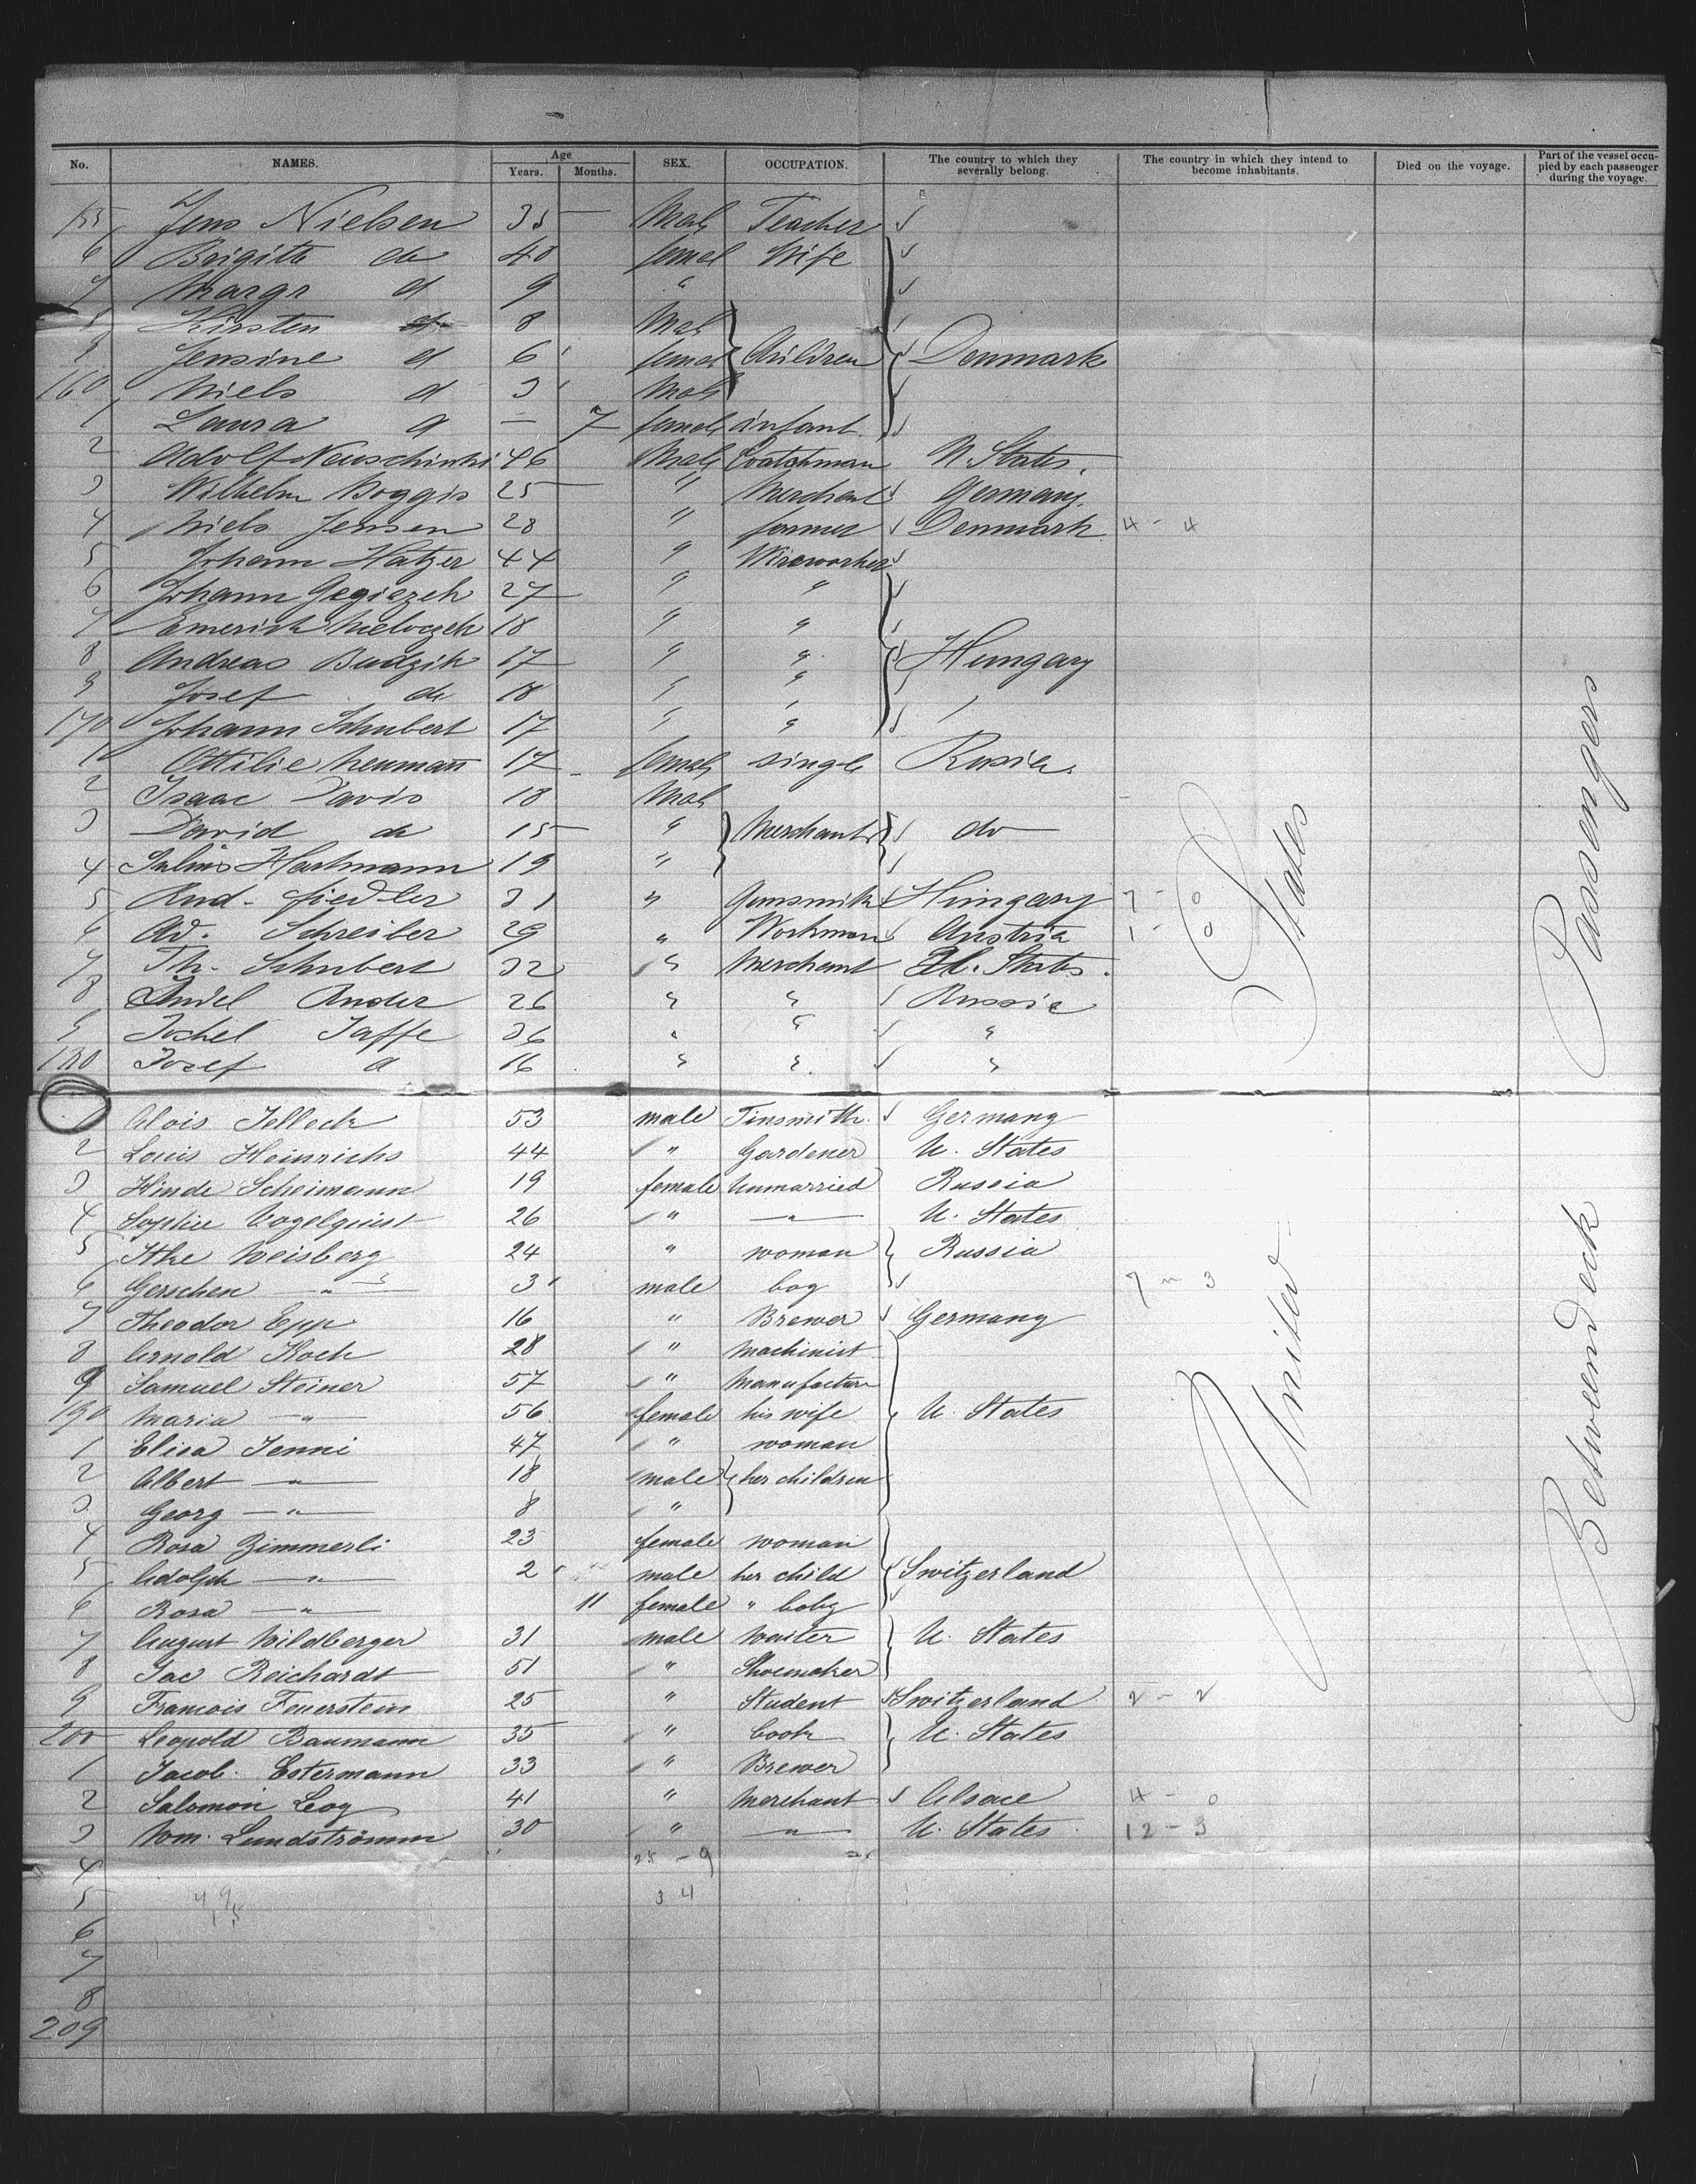 No. NAMES. Age Years. Months. SEX. OCCUPATION. The country to which they severally belong. The country in which they intend to become inhabitants. Died on the voyage. Part of the vessel occupied by each passenger during the voyage.
155 Jens Nielsen 35 — Male Teacher
6 Brigitte do 40 femal Wife
7 Margr d 9 "
8 Kirsten d 8 Male
9 Jensine d 6 femal Children Denmark
160 Niels d 3 Male
1 Laura d — 7 female infant
2 Adolf Neuschinski 46 Male Watchman U. States.
3 Wilhelm Boggis 25 — " Merchant Germany
4 Niels Jensen 28 " farmer Denmark 4 - 4
5 Johann Hatzer 44 " Wireworker
6 Johann Gegiezek 27 " "
7 Emerich 18 " "
8 Andreas Budzik 17 " " Hungary
9 Josef do 18 " "
170 Johann Schubert 17 " "
1 Ottilie Neumann 17 female single Rusia
2 Isaac Davis 18 Male
3 David do 15 " Merchants do
4 Julius Hartmann 19 "
5 Rud. Fiedler 31 " Gunsmith Hungary 7 - 0
6 Ad. Schreiber 29 " Workman Austria 1 - 0
7 Th. Schubert 32 " Merchant U. States.
8 Ander 26 " " Russia
9 Jochel Jaffe 36 " " "
180 Josef d 16 " " "
1 Alois Jelleck 53 male Tinsmith Germany
2 Louis Heinrichs 44 " Gardener U. States
3 Hinde Scheimann 19 female Unmarried Russia
4 Sophie Vogelquist 26 " — " — U. States
5 Itke Weisberg 24 " woman Russia
6 Gerschen — " — 3 male boy 7 - 3
7 Theodor Epp 16 " Brewer Germany
8 Arnold Koch 28 " Machinist
9 Samuel Steiner 57 " Manufacturer
190 Maria — " 56 female his wife U. States
1 Elisa Jenni 47 " woman
2 Albert — " — 18 male her children
3 Georg — " — 8 "
4 Rosa Zimmerli 23 female woman
5 Adolph — " — 2 male her child Switzerland
6 Rosa — " — 11 female " baby
7 August Wildberger 31 male Waiter U. States
8 Jac Reichardt 51 " Shoemaker
9 Francois Feuerstein 25 " Student Switzerland 2 - 2
200 Leopold Baumann 35 " Cook U. States
1 Jacob Estermann 33 " Brewer
2 Salomon Levy 41 " Merchant Alsace 4 - 0
3 Wm. Lundströmm 30 " — " — U. States 12 - 3
4 25 - 9
5 34
6
7
8
209
United States
Betweendeck Passengers